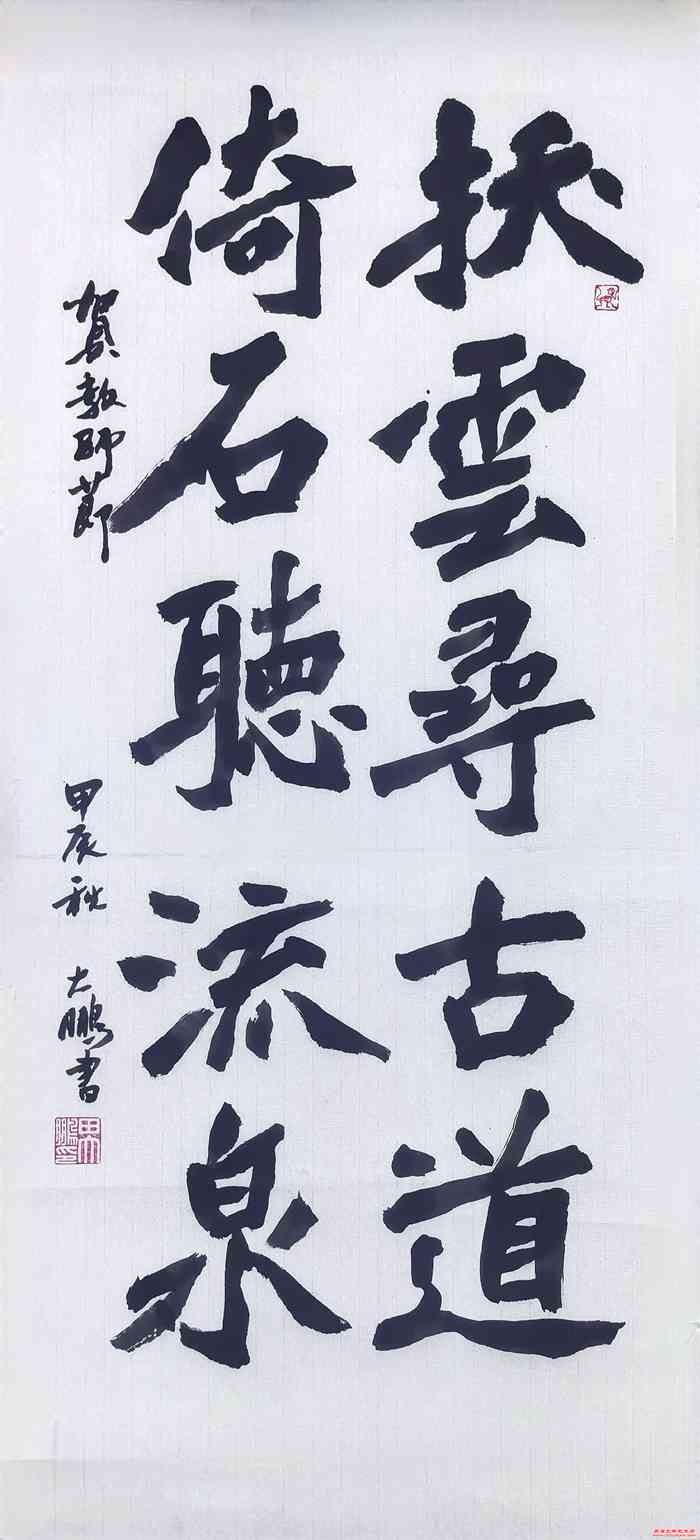 拨雲尋古道
倚石聽流泉
賀教師節
甲辰秋 大鵬書